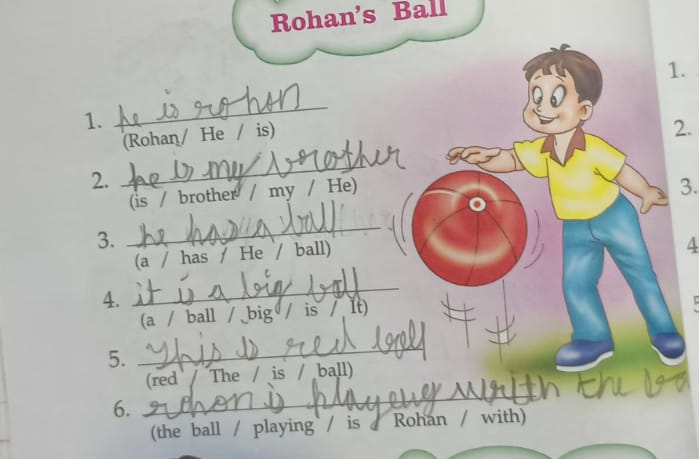 Rohan's Ball
1. he is rohon
(Rohan/ He / is)
2. he is my brother
(is / brother / my / He)
3. he has a ball
(a / has / He / ball)
4. it is a big ball
(a / ball / big / is / It)
5. This is red ball
(red / The / is / ball)
6. rohon is playeng with the
(the ball / playing / is / Rohan / with)
1.
2.
3.
4